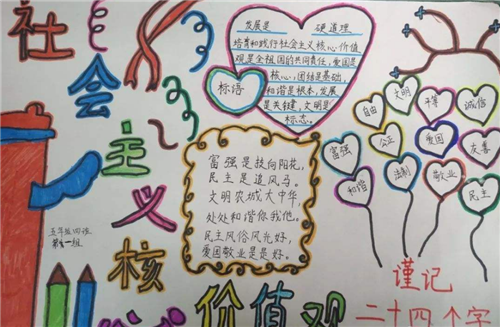 社会主义核心价值观
发展是 硬道理
培育和践行社会主义核心价值
观是全祖国的共同责任,爱国是
核心,团结是基础,
和谐是根本,发展
是关键,文明是
标志.
标语
富强是扶向阳花,
民主是追风马。
文明农城大中华,
处处和谐你我他。
民主风俗风光好,
爱国敬业是最好。
自由
文明
平等
诚信
富强
公正
爱国
友善
和谐
法制
敬业
民主
五年级四班
第 一组
谨记
二十四个字